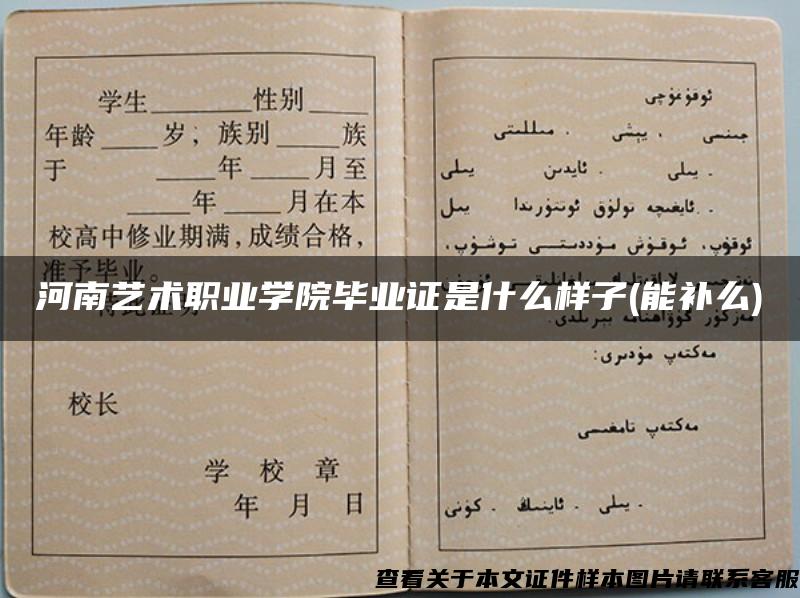 学生______性别____
年龄____岁；族别____族
于 ____年____月至
____年____月在本
校高中修业期满，成绩合格，
准予毕业。
校长
学 校 章
年 月 日
ئوقۇغۇچى
جىنسى ، يېشى ، مىللىتى
، يىلى ، ئايدىن يىلى
، ئايغىچە تولۇق ئوتتۇرىدا يىل
ئوقۇپ، ئوقۇش مۇددىتى توشۇپ،
مەكتەپ مۇدىرى:
مەكتەپ تامغىسى
، يىلى ، ئاينىڭ ، كۈنى
河南艺术职业学院毕业证是什么样子(能补么)
查看关于本文证件样本图片请联系客服